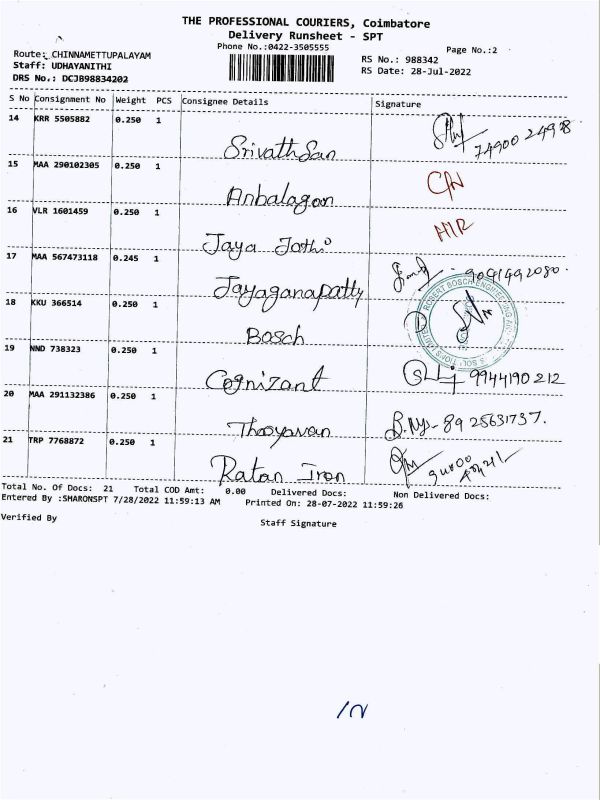 THE PROFESSIONAL COURIERS, Coimbatore
Delivery Runsheet - SPT
Phone No.:0422-3505555
Page No.:2
Route: CHINNAMETTUPALAYAM
Staff: UDHAYANITHI
DRS No.: DCJB98834202
RS No.: 988342
RS Date: 28-Jul-2022
S No Consignment No Weight PCS Consignee Details Signature
14 KRR 5505882 0.250 1 Srivathsan 74900 24978
15 MAA 290102305 0.250 1 Anbalagan
16 VLR 1601459 0.250 1 Jaya Jothi
17 MAA 567473118 0.245 1 Jayaganapatty 9091492080
18 KKU 366514 0.250 1 Bosch
ROBERT BOSCH ENGINEERING AND
19 NND 738323 0.250 1 Cognizant 9944190212
20 MAA 291132386 0.250 1 Thayavan 89 25631737.
21 TRP 7768872 0.250 1 Ratan Iron
Total No. Of Docs: 21 Total COD Amt: 0.00 Delivered Docs: Non Delivered Docs:
Entered By :SHARONSPT 7/28/2022 11:59:13 AM Printed On: 28-07-2022 11:59:26
Verified By Staff Signature